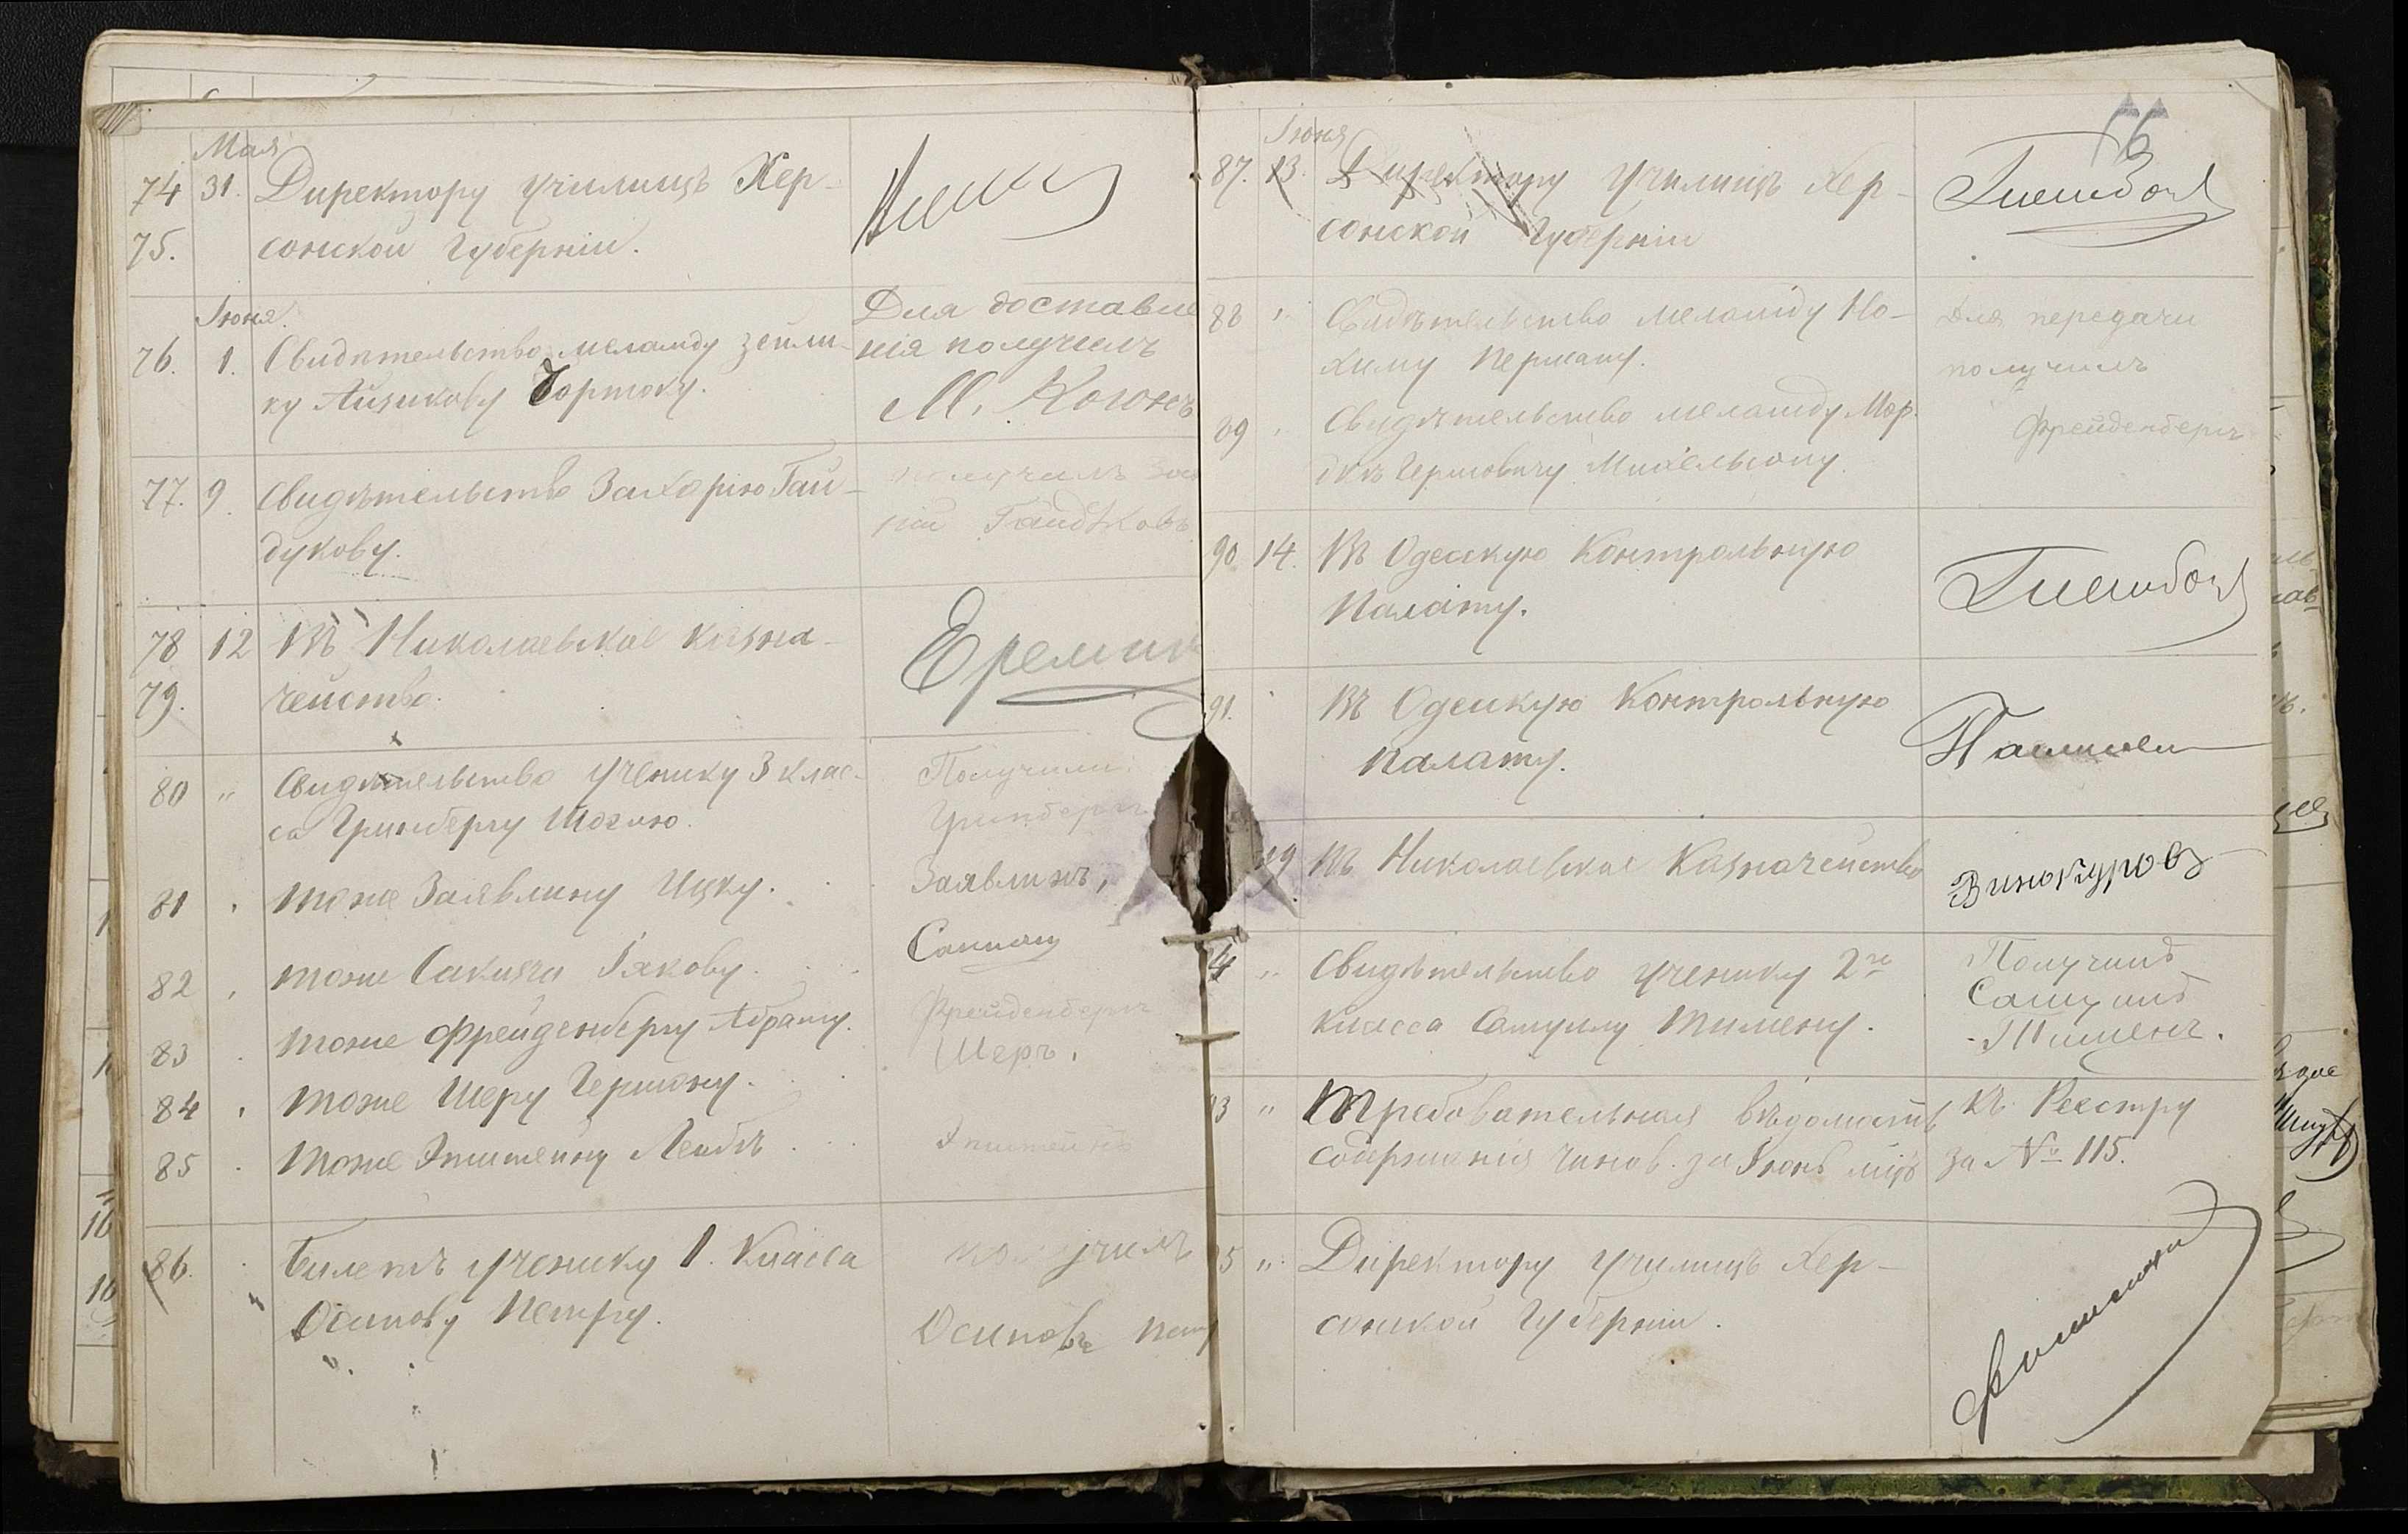 Мая
74 31. Директору училищъ Хер-
75. сонской Губерніи.
Іюня.
76. 1. Свидѣтельство меламду Зейли-
ку Айзикову Чортоку.
Для доставле
нія получилъ
М. Когонъ
77. 9. Свидѣтельство Захарію Гай-
дукову.
получилъ Зах
рій Гайдуковъ
78 12 Въ Николаевское казна-
79. чейство.
Еремин
80 " Свидѣтельство ученику 3 клас-
са Гринбергу Шоелю.
Получили:
Гринбергъ
81 " тоже Заявлину Ицку.
Заявлинъ,
82 " тоже Сакизчи Іакову.
83 " тоже Фрейденбергу Абраму.
Фрейденбергъ
84 " тоже Шеру Гершону.
Шеръ.
85 " тоже Эпштейну Лейбѣ
Эпштейнъ
86. " Билетъ ученику 1. Класса
Осипову Петру.
получилъ
Осиповъ Пет
56
Іюня
87. 13. Директору Училищъ Хер-
сонской Губерніи
88 " Свидѣтельство меламду Но-
химу Перману.
Для передачи
получилъ
89 " Свидѣтельство меламду Мор-
дкѣ Гершовичу Михельсону.
Фрейденбергъ
90 14. Въ Одесскую Контрольную
Палату.
91. " Въ Одесскую Контрольную
Палату.
19 Въ Николаевское Казначейство
Винокуровъ
4 " Свидѣтельство ученику 2го
класса Самуилу Тимену.
Получилъ
Самуилъ
Тименъ.
93 " Требовательная вѣдомость
содержанія чинов. за Іюнь мцъ
къ Реестру
за № 115.
5 " Директору училищъ Хер-
сонской Губерніи.